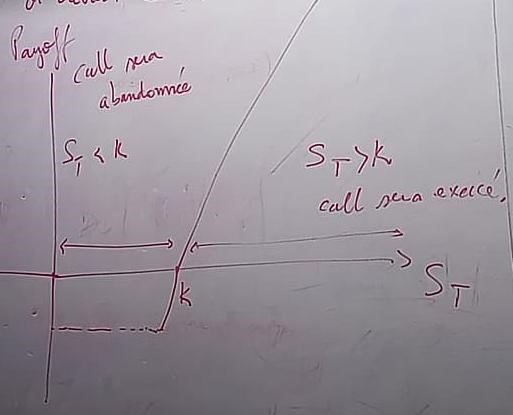 Payoff
call sera
abandonnée
S_T < K
S_T > K
call sera exercé.
K
S_T